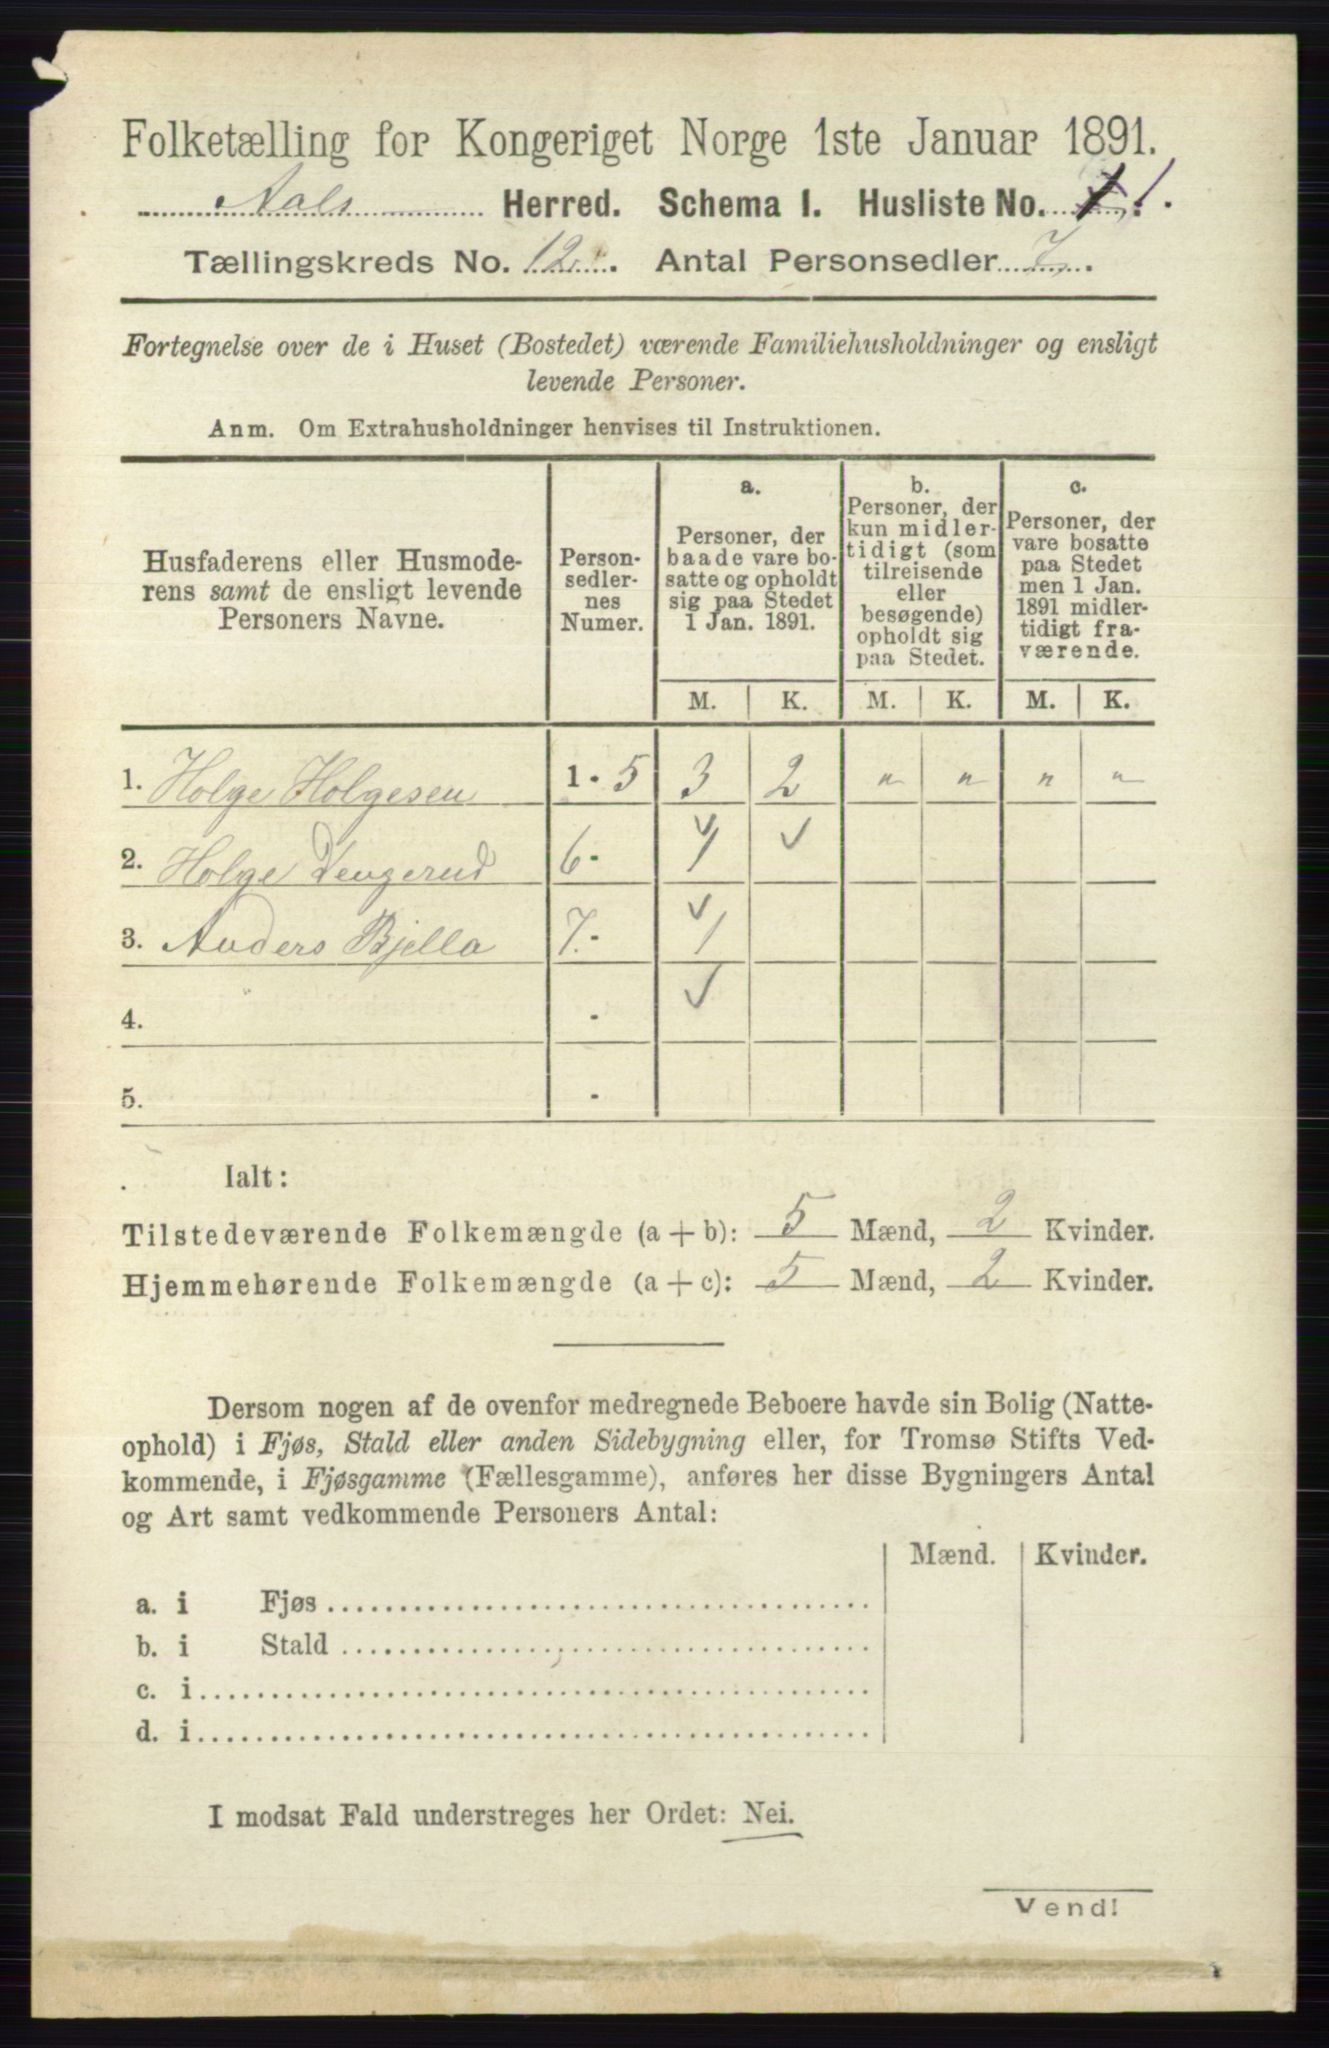 Folketælling for Kongeriget Norge 1ste Januar 1891.
Aals Herred. Schema I. Husliste No. 1.
Tællingskreds No. 12. Antal Personsedler 7.
Fortegnelse over de i Huset (Bostedet) værende Familiehusholdninger og ensligt
levende Personer.
Anm. Om Extrahusholdninger henvises til Instruktionen.
Husfaderens eller Husmode-
rens samt de ensligt levende
Personers Navne.
Person-
sedler-
nes
Numer.
a.
Personer, der
baade vare bo-
satte og opholdt
sig paa Stedet
1 Jan. 1891.
b.
Personer, der
kun midler-
tidigt (som
tilreisende
eller
besøgende)
opholdt sig
paa Stedet.
c.
Personer, der
vare bosatte
paa Stedet
men 1 Jan.
1891 midler-
tidigt fra-
værende.
M. K. M. K. M. K.
1. Holge Holgesen 1 - 5 3 2 " " " "
2. Holge Dengerud 6 - 1
3. Anders Bjella 7. - 1
4. -
5. -
Ialt:
Tilstedeværende Folkemængde (a + b): 5 Mænd, 2 Kvinder.
Hjemmehørende Folkemængde (a + c): 5 Mænd, 2 Kvinder.
Dersom nogen af de ovenfor medregnede Beboere havde sin Bolig (Natte-
ophold) i Fjøs, Stald eller anden Sidebygning eller, for Tromsø Stifts Ved-
kommende, i Fjøsgamme (Fællesgamme), anføres her disse Bygningers Antal
og Art samt vedkommende Personers Antal:
Mænd. Kvinder.
a. i Fjøs
b. i Stald
c. i
d. i
I modsat Fald understreges her Ordet: Nei.
Vend!